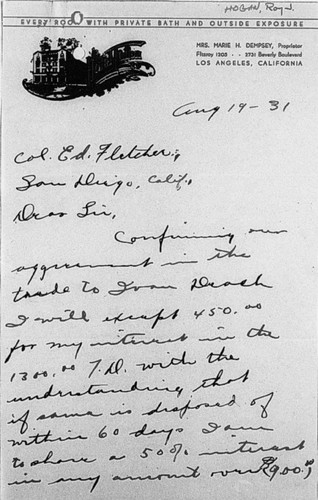 HOGAN, Roy J.
EVERY ROOM WITH PRIVATE BATH AND OUTSIDE EXPOSURE
MRS. MARIE H. DEMPSEY, Proprietor
Fitzroy 1308 - - 2731 Beverly Boulevard
LOS ANGELES, CALIFORNIA
Aug 19-31
Col. Ed. Fletcher;,
San Diego, Calif.,
Dear Sir,
Confirming our
aggrement in the
trade to Ivan
I will except 450.00
for my interest in the
1300.00 T.D. with the
understanding that
if same is disposed of
within 60 days I am
to share a 50% interest
in any amount over $900.00